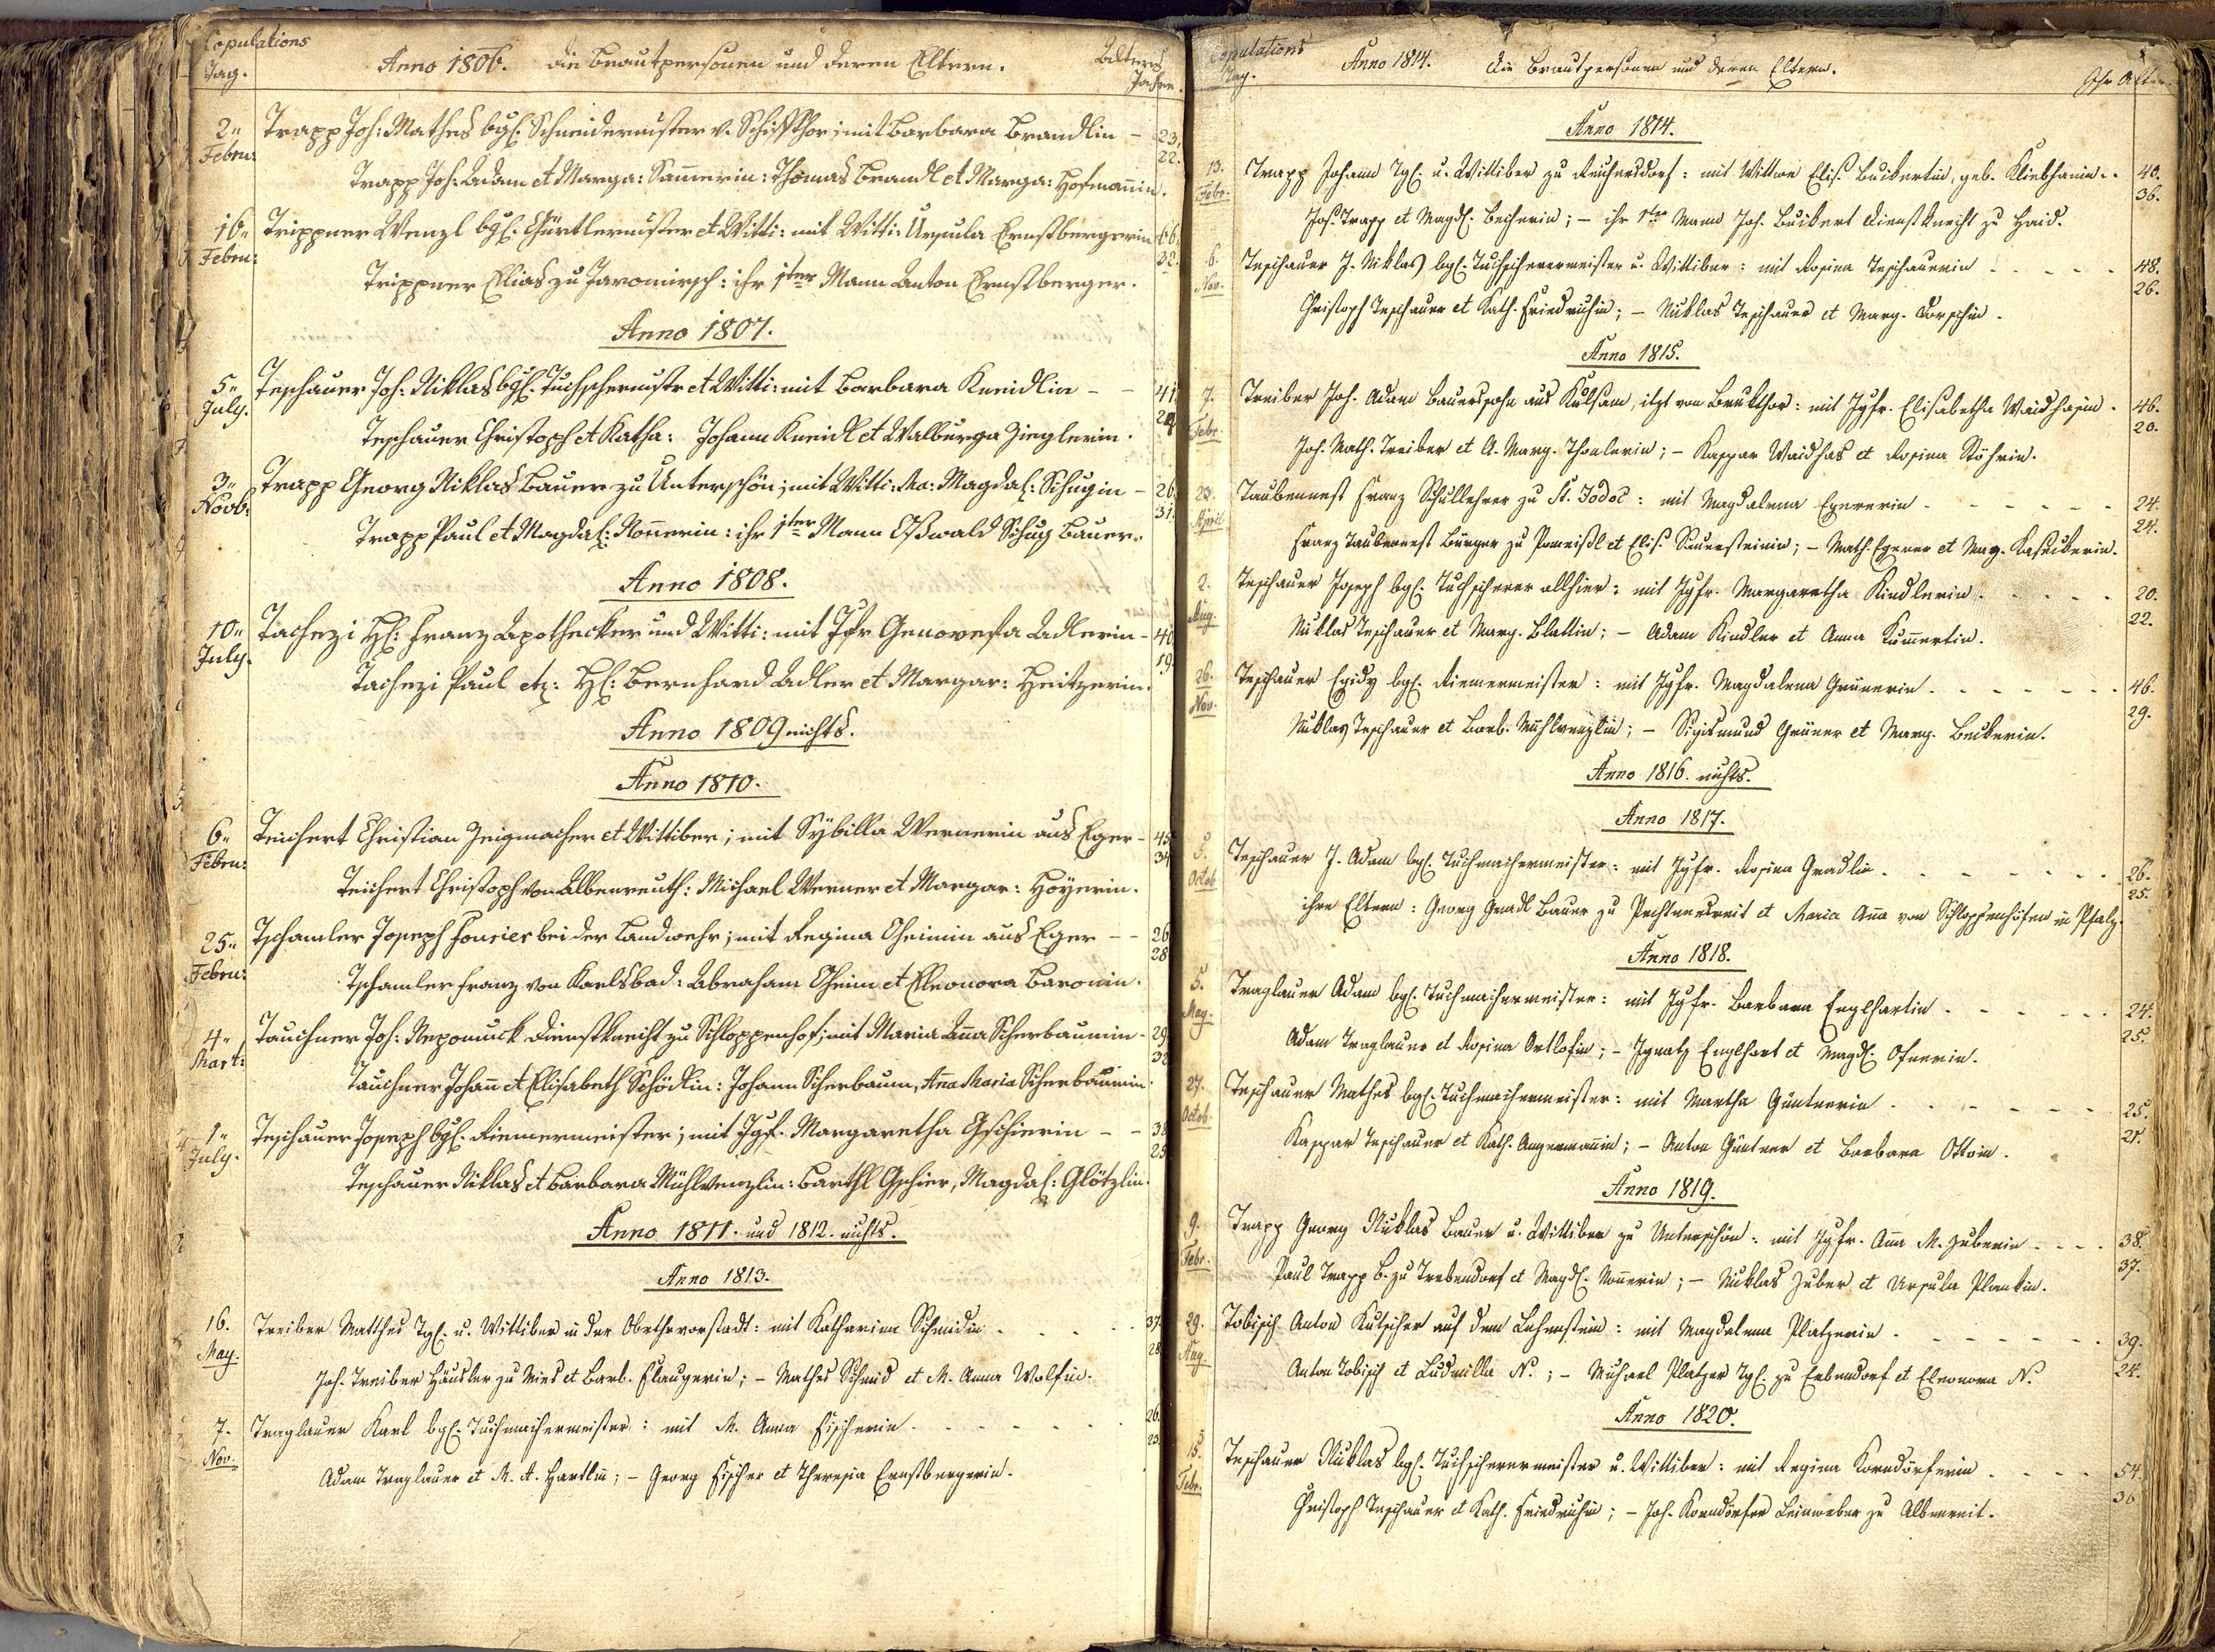 Copulations
Tag.
Anno 1806. die Brautpersonen und deren Eltern.
Alters
Jahre.
2"
Febru:
Trapp Joh: Mathes bgl: Schneidermister v. Schiffthor; mit Barbara Brandlin – 23.
22.
Trapp Joh: Adam et Marga: Sammerin: Thomas Brandl et Marga: Hofmañin.
16"
Febru:
Trippner Wenzl bgl: Gürtlermister et Witti: mit Witti: Ursula Ernstbergerin 66.
32.
Trippner Elias zu Jaromirsch: ihr 1ter Mann Anton Ernstberger.
Anno 1807.
5"
July.
Teschauer Joh: Niklas bgl: Tuchschermstr et Witti: mit Barbara Kneidlin – – 41.
24
Teschauer Christoph et Katha: Johann Kneidl et Walburga Zieglerin.
3"
Novb:
Trapp Georg Niklas Bauer zu Unterschön; mit Witti: Ma: Magdal: Schugin – 26.
31.
Trapp Paul et Magdal: Noñerin: ihr 1ter Mann Oßwald Schug Bauer.
Anno 1808.
10"
July.
Tachezi Hl: Franz Apothecker und Witti: mit Jfr Genovefa Adlerin – 40
19.
Tachezi Paul etz: Hl: Bernhard Adler et Margar: Heitzerin.
Anno 1809 nichts.
Anno 1810.
6"
Febru:
Teichert Christian Zeigmacher et Wittiber; mit Sybilla Wernerin aus Eger – 45
34
Teichert Christoph von Albenreuth: Michael Werner et Margar: Hoyerin.
25"
Febru:
Tschamler Joseph Fourier bei der Landwehr; mit Regina Oheimin aus Eger – – 26
28
Tschamler Franz von Karlsbad: Abraham Oheim et Eleonora Baronin.
4"
Mart:
Tauchner Joh: Nepomuck Dienstknecht zu Schloppenhof; mit Maria Aña Scherbaumin – 29
32
Tauchner Johañ et Elisabeth Schödlin: Johann Scherbaum, Aña Maria Scherbaumin.
1"
July.
Teschauer Joseph bgl: Riemermeister; mit Jgf. Margaretha Gschierin – – 38
25
Teschauer Niklas et Barbara Mühlwenzlin: Barthl Gschier, Magdal: Glötzlin.
Anno 1811. und 1812. nichts.
Anno 1813.
16.
May.
Treiber Matthes Tgl. u. Wittiber in der Obethrvorstadt: mit Katharina Schmidin . . . . 37
28
Joh. Treiber Häusler zu Mies et Barb. Flaugerin; – Mathes Schmid et M. Anna Wolfin.
7.
Nov.
Traglauer Karl bgl. Tuchmachermeister: mit M. Anna Fischerin . . . . . . 26.
23.
Adam Traglauer et M. A. Hartlin; – Georg Fischer et Theresia Ernstbergerin.
Copulations
Tag.
Anno 1814. die Brautpersonen und deren Eltern.
Ihr Alter
Anno 1814.
13.
Febr.
Trapp Johann Tgl. u. Wittiber zu Reichersdorf: mit Wittwe Elis. Buikertin, geb. Kliebhanin . . 40.
36.
Jos. Trapp et Magdl. Beiherin; – ihr 1ter Mann Joh. Buikert Dienstknecht zu Haid.
6.
Nov.
Teschauer J. Niklas bgl. Tuchscherermeister u. Wittiber: mit Rosina Teschauerin . . . . . 48.
26.
Christoph Teschauer et Kath. Friedrichin; – Niklas Teschauer et Marg. Dorschin.
Anno 1815.
7.
Febr.
Treiber Joh. Adam Bauerssohn aus Kulsam, itzt von Brukthor: mit Jgfr. Elisabetha Waidhasin . 46.
20.
Joh. Math. Treiber et A. Marg. Thonlerin; – Kaspar Waidhas et Rosina Röhrin.
23.
April
Taubennest Franz Schullehrer zu St. Jodoc: mit Magdalena Egererin . . . . . . 24.
24.
Franz Taubennest Bürger zu Pomeißl et Elis. Sauersteinin; – Math. Egerer et Mag. Kaseckerin.
2.
Aug.
Teschauer Joseph bgl. Tuchscherer allhier: mit Jgfr. Margaretha Kindlerin . . . . . 20.
22.
Niklas Teschauer et Marg. Blattin; – Adam Kindler et Anna Kumertin.
26.
Nov.
Teschauer Egidy bgl. Riemermeister: mit Jgfr. Magdalena Grünerin . . . . . . . 46.
29.
Niklas Teschauer et Barb. Mühlwenzlin; – Sigismund Grüner et Marg. Beckerin.
Anno 1816. nichts.
Anno 1817.
5.
Octob
Teschauer J. Adam bgl. Tuchmachermeister: mit Jgfr. Rosina Gradlin . . . . . . . 26.
25.
ihre Eltern: Georg Gradl Bauer zu Pechtnersreit et Maria Aña von Schloppenhofen in Pfalz.
Anno 1818.
5.
May.
Traglauer Adam bgl. Tuchmachermeister: mit Jgfr. Barbara Englhartin . . . . . . 24.
25.
Adam Traglauer et Rosina Ortlofin; – Ignatz Englhart et Magdl. Ofnerin.
27.
Octob
Teschauer Mathes bgl. Tuchmachermeister: mit Martha Güntnerin . . . . . . 25.
21.
Kaspar Teschauer et Kath. Angermañin; – Anton Güntner et Barbara Ottoin.
Anno 1819.
9.
Febr.
Trapp Georg Niklas Bauer u. Wittiber zu Unterschön: mit Jgfr. Aña M. Zuberin . . . . 38.
37.
Paul Trapp B. zu Trebendorf et Magdl. Noñerin; – Niklas Zuber et Ursula Plankin.
29.
Aug.
Tobisch Anton Kutscher auf dem Lehenstein: mit Magdalena Platzerin . . . . . . . 39.
24.
Anton Tobisch et Ludmilla N.; – Michael Platzer Tgl. zu Erbendorf et Eleonora N.
Anno 1820.
15.
Febr.
Teschauer Niklas bgl. Tuchscherermeister u. Wittiber: mit Regina Korndörferin . . . . 54.
36
Christoph Teschauer et Kath. Friedrichin; – Joh. Korndörfer Leinweber zu Albenreit.